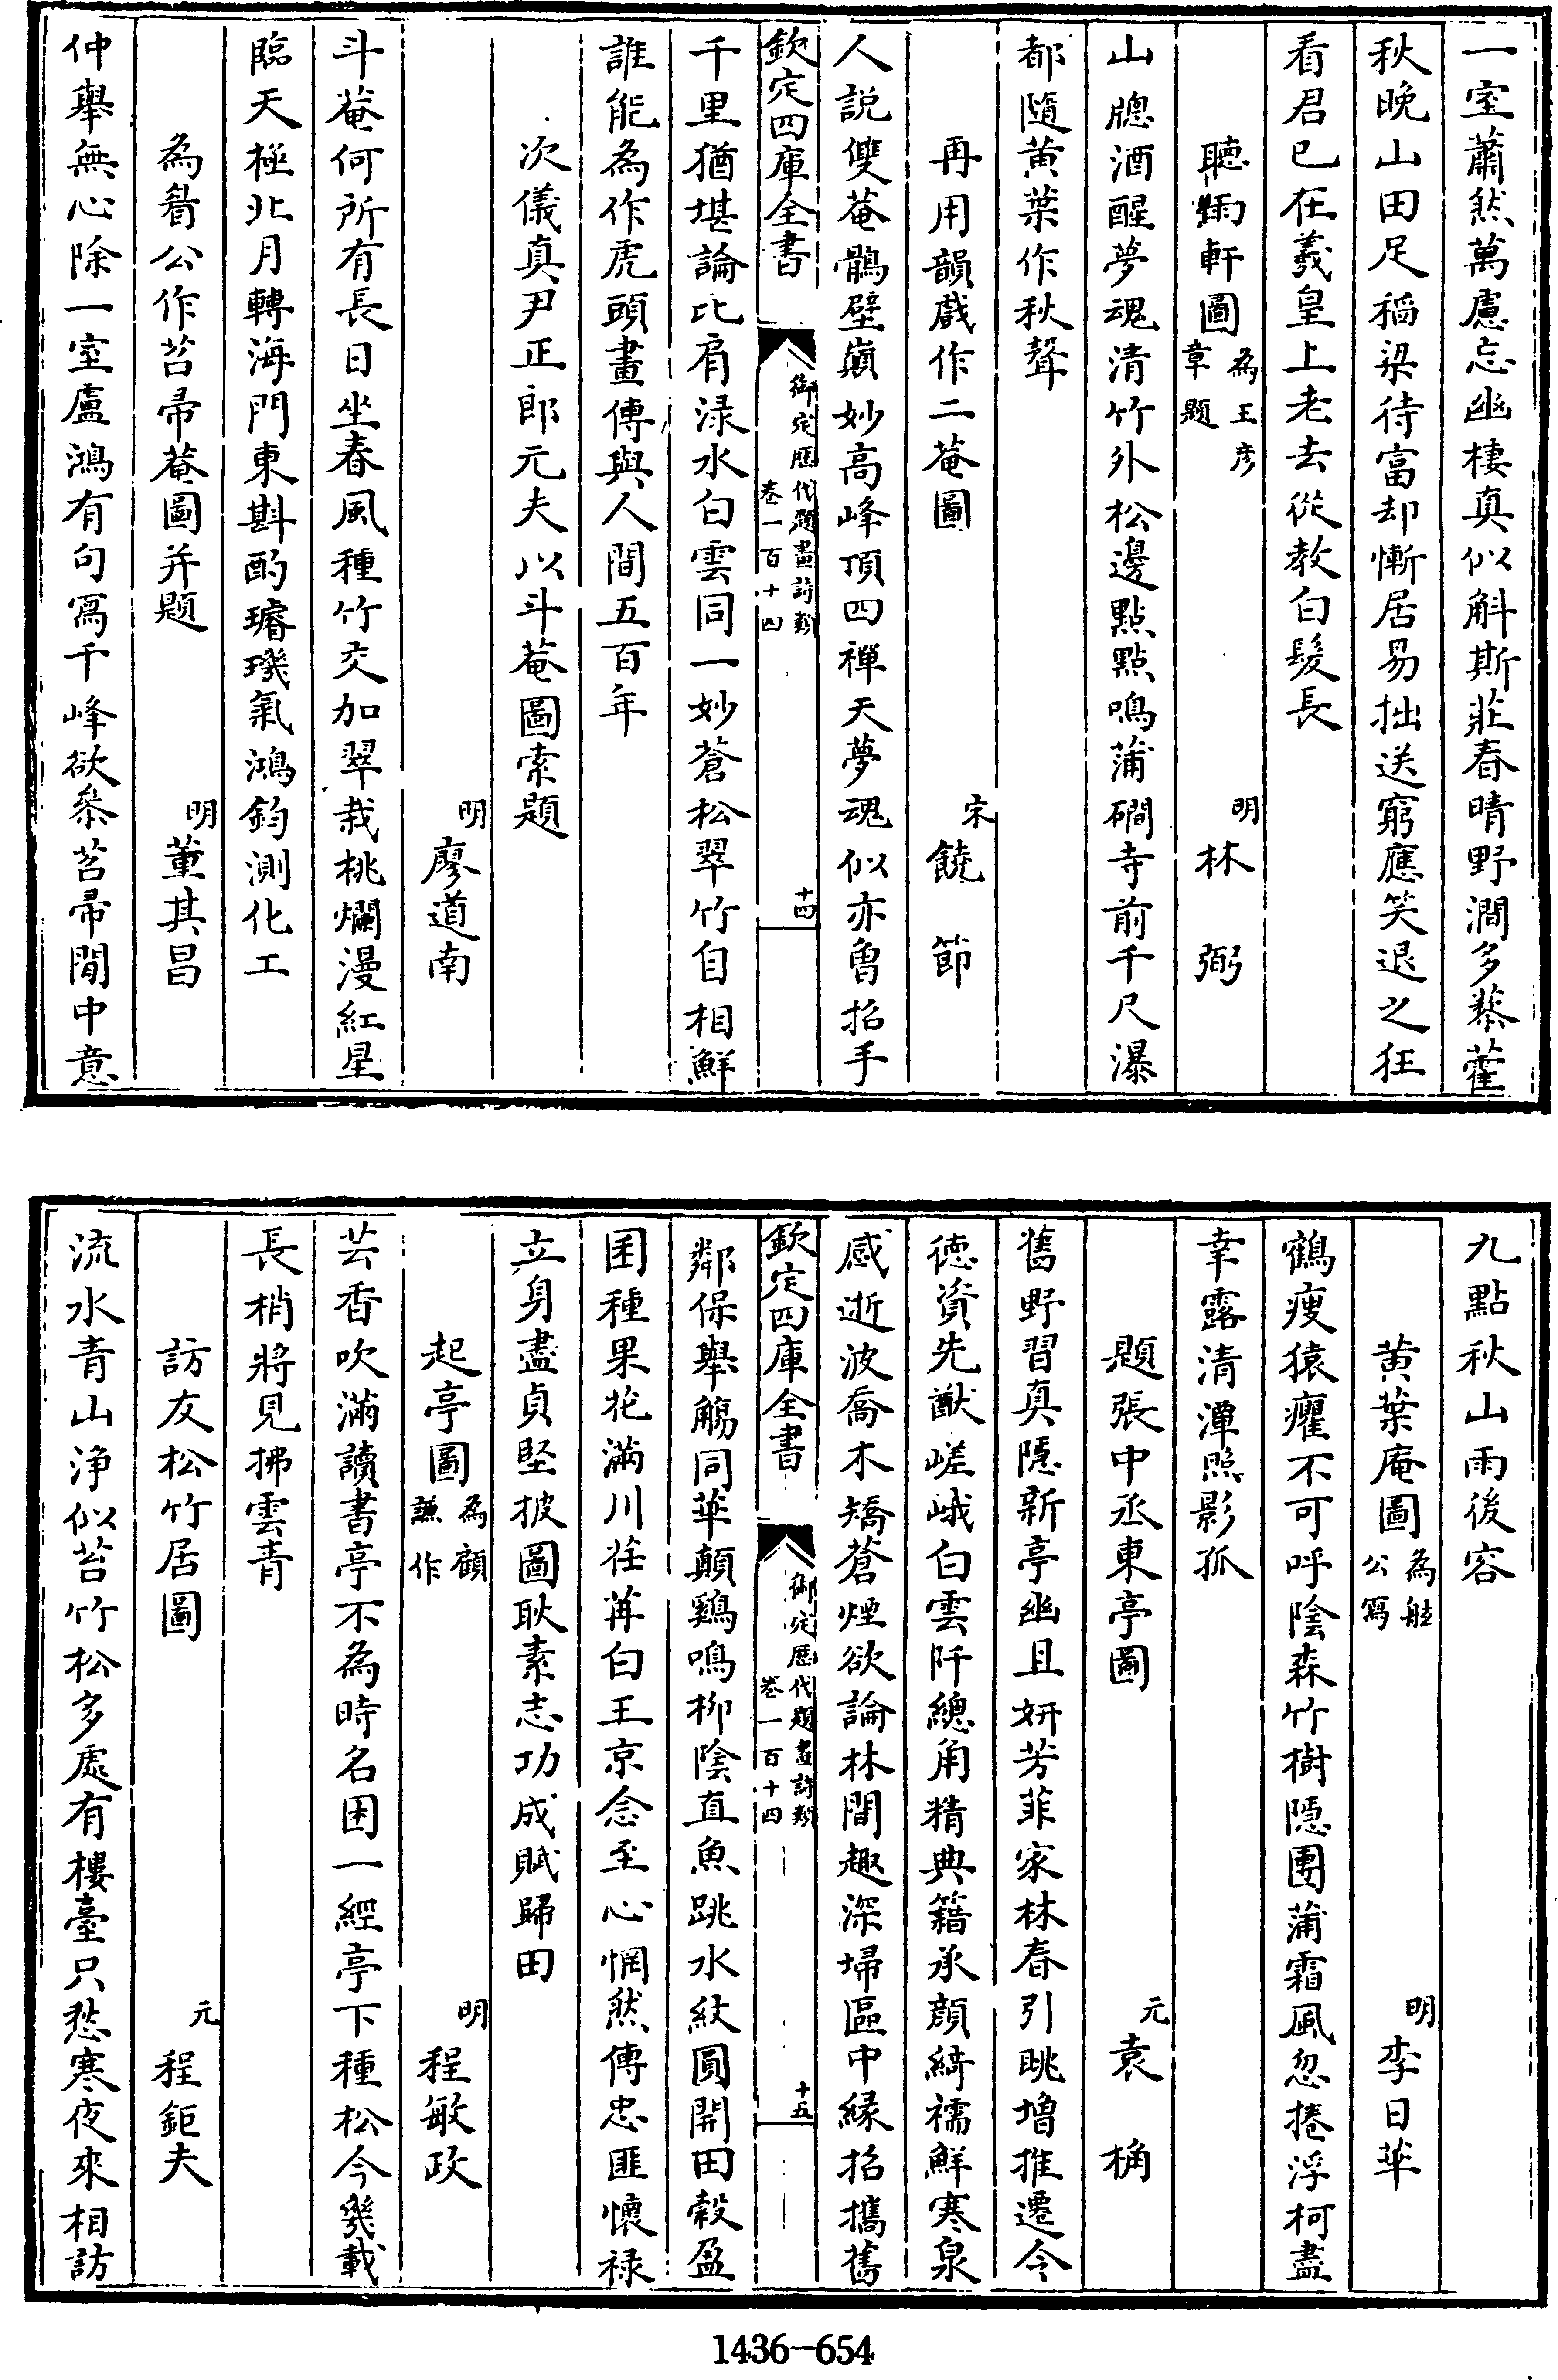 一室蕭然萬慮忘幽棲真似斛斯莊春晴野澗多藜藿
秋晚山田足稻粱待富却慚居易拙送窮應笑退之狂
看君已在羲皇上老去從教白髮長
聴雨軒圖為王彦章題
明林弼
山牕酒醒夢魂清竹外松邊點點鳴蒲磵寺前千尺瀑
都隨黄葉作秋聲
再用韻戲作二菴圖
宋饒節
人説雙菴鶻壁巔妙高峰頂四禪天夢魂似亦魯招手
欽定四庫全書
御定歷代題畫詩類
卷一百十四
十四
千里猶堪論比肩渌水白雲同一妙蒼松翠竹自相鮮
誰能為作虎頭畫傳與人間五百年
次儀真尹正郎元夫以斗菴圖索題
明廖道南
斗菴何所有長日坐春風種竹交加翠栽桃爛漫紅星
臨天極北月轉海門東斟酌璿璣氣鴻鈞測化工
為眷公作苕帚菴圖并題
明董其昌
仲舉無心除一室盧鴻有句寫千峰欲叅苕帚閒中意
九點秋山雨後容
黄葉庵圖為舷公寫
明李日華
鶴瘦猿癯不可呼陰森竹樹隱團蒲霜風忽捲浮柯盡
幸露清潭照影孤
題張中丞東亭圖
元袁桷
舊野習真隠新亭幽且妍芳菲家林春引眺增推遷令
德資先猷嵯峨白雲阡總角精典籍承顔綺襦鮮寒泉
感逝波喬木矯蒼煙欲論林間趣深埽區中緣招攜舊
欽定四庫全書
御定歷代題畫詩類
卷一百十四
十五
鄰保舉觴同華顛鷄鳴柳陰直魚跳水紋圓開田穀盈
囷種果花滿川莊苒白王京念至心惘然傳忠匪懷禄
立身盡貞堅披圖耿素志功成賦歸田
起亭圖為顧謙作
明程敏政
芸香吹滿讀書亭不為時名困一經亭下種松今幾載
長梢將見拂雲青
訪友松竹居圖
元程鉅夫
流水青山浄似苔竹松多處有樓臺只愁寒夜來相訪
1436-654